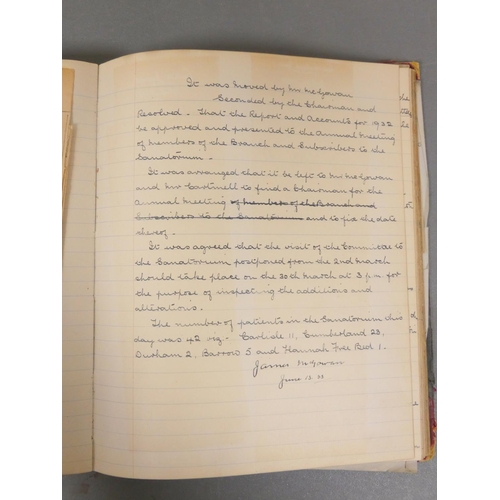 It was moved by Mr McGowan
Seconded by the Chairman and
Resolved - That the Report and Accounts for 1932
be approved and presented to the Annual Meeting
of members of the Branch and Subscribers to the
Sanatorium -
It was arranged that it be left to Mr McGowan
and Mr Cartmell to find a Chairman for the
Annual Meeting of members of the Branch and
Subscribers to the Sanatorium and to fix the date
thereof -
It was agreed that the visit of the Committee to
the Sanatorium postponed from the 2nd March
should take place on the 30th March at 3 p.m for
the purpose of inspecting the additions and
alterations.
The number of patients in the Sanatorium this
day was 42 viz - Carlisle 11, Cumberland 23,
Durham 2, Barrow 5 and Hannah Free Bed 1.
James McGowan
June 13